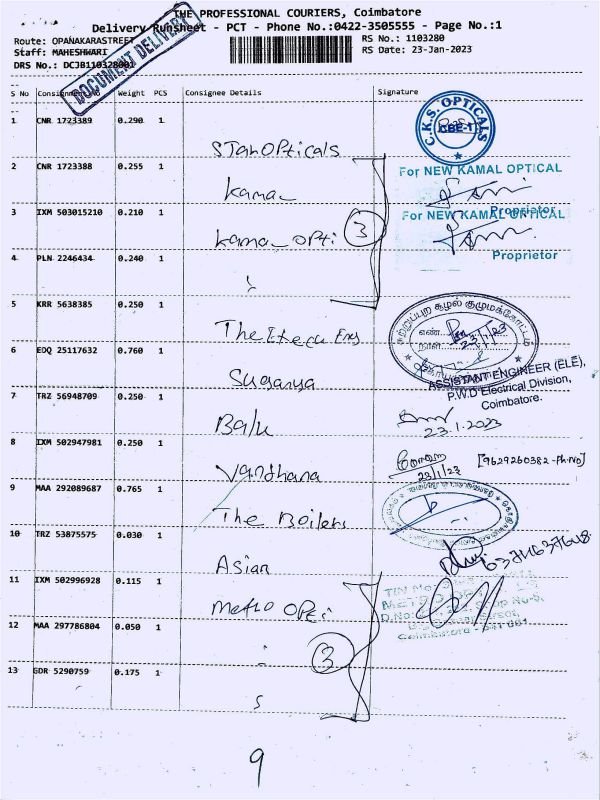 THE PROFESSIONAL COURIERS, Coimbatore
Delivery Runsheet - PCT - Phone No.:0422-3505555 - Page No.:1
Route: OPANAKARASTREET RS No.: 1103280
Staff: MAHESHWARI RS Date: 23-Jan-2023
DRS No.: DCJB110328001
DOCUMENT DELIVERY
S No Consignment No Weight PCS Consignee Details Signature
1 CNR 1723389 0.290 1 Star Opticals
C.K.S. OPTICALS
CBE-1
2 CNR 1723388 0.255 1 Kamal
For NEW KAMAL OPTICAL
Proprietor
3 IXM 503015210 0.210 1 Kamal Opti 3
For NEW KAMAL OPTICAL
4 PLN 2246434 0.240 1
Proprietor
5 KRR 5638385 0.250 1 The Eng
சுற்றுப்புற சூழல்
எண்
நாள் 23/1/23
6 EDQ 25117632 0.760 1 Suganya
ASSISTANT ENGINEER (ELE),
P.W.D Electrical Division,
Coimbatore.
7 TRZ 56948709 0.250 1 Balu
23.1.2023
8 IXM 502947981 0.250 1 Vandhana
23/1/23 [9629260382-Ph.No]
9 MAA 292089687 0.765 1 The Boilers
10 TRZ 53875575 0.030 1 Asian
6374637648
11 IXM 502996928 0.115 1 Metro Opti
12 MAA 297786804 0.050 1 3
13 GDR 5290759 0.175 1
9